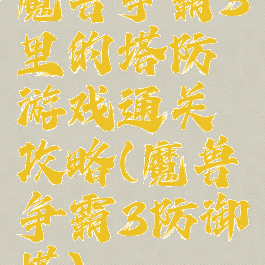 魔兽争霸3
里的塔防
游戏通关
攻略(魔兽
争霸3防御
塔)